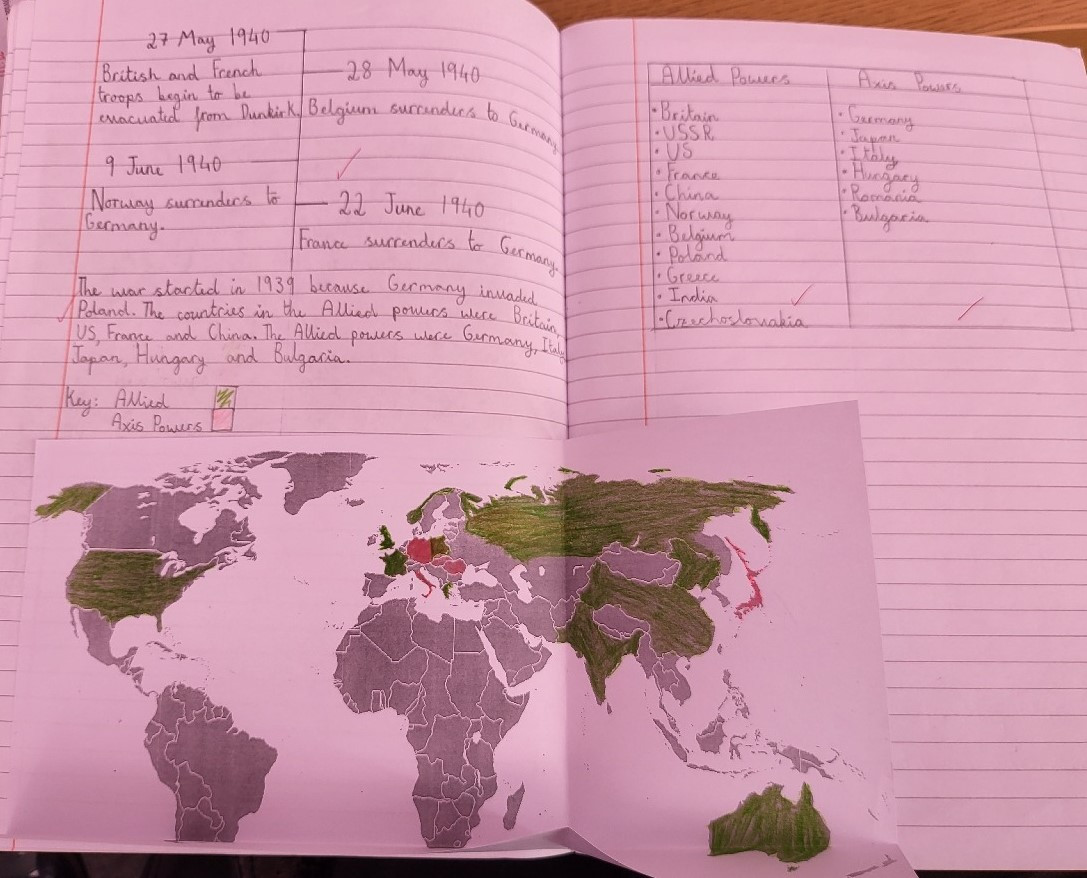 27 May 1940
British and French
troops begin to be
evacuated from Dunkirk.
28 May 1940
Belgium surrenders to Germany.
9 June 1940
Norway surrenders to
Germany.
22 June 1940
France surrenders to Germany.
The war started in 1939 because Germany invaded
Poland. The countries in the Allied powers were Britain,
US, France and China. The Allied powers were Germany, Italy
Japan, Hungary and Bulgaria.
Key: Allied
Axis Powers
Allied Powers
• Britain
• USSR
• US
• France
• China
• Norway
• Belgium
• Poland
• Greece
• India
• Czechoslovakia
Axis Powers
• Germany
• Japan
• Italy
• Hungary
• Romania
• Bulgaria